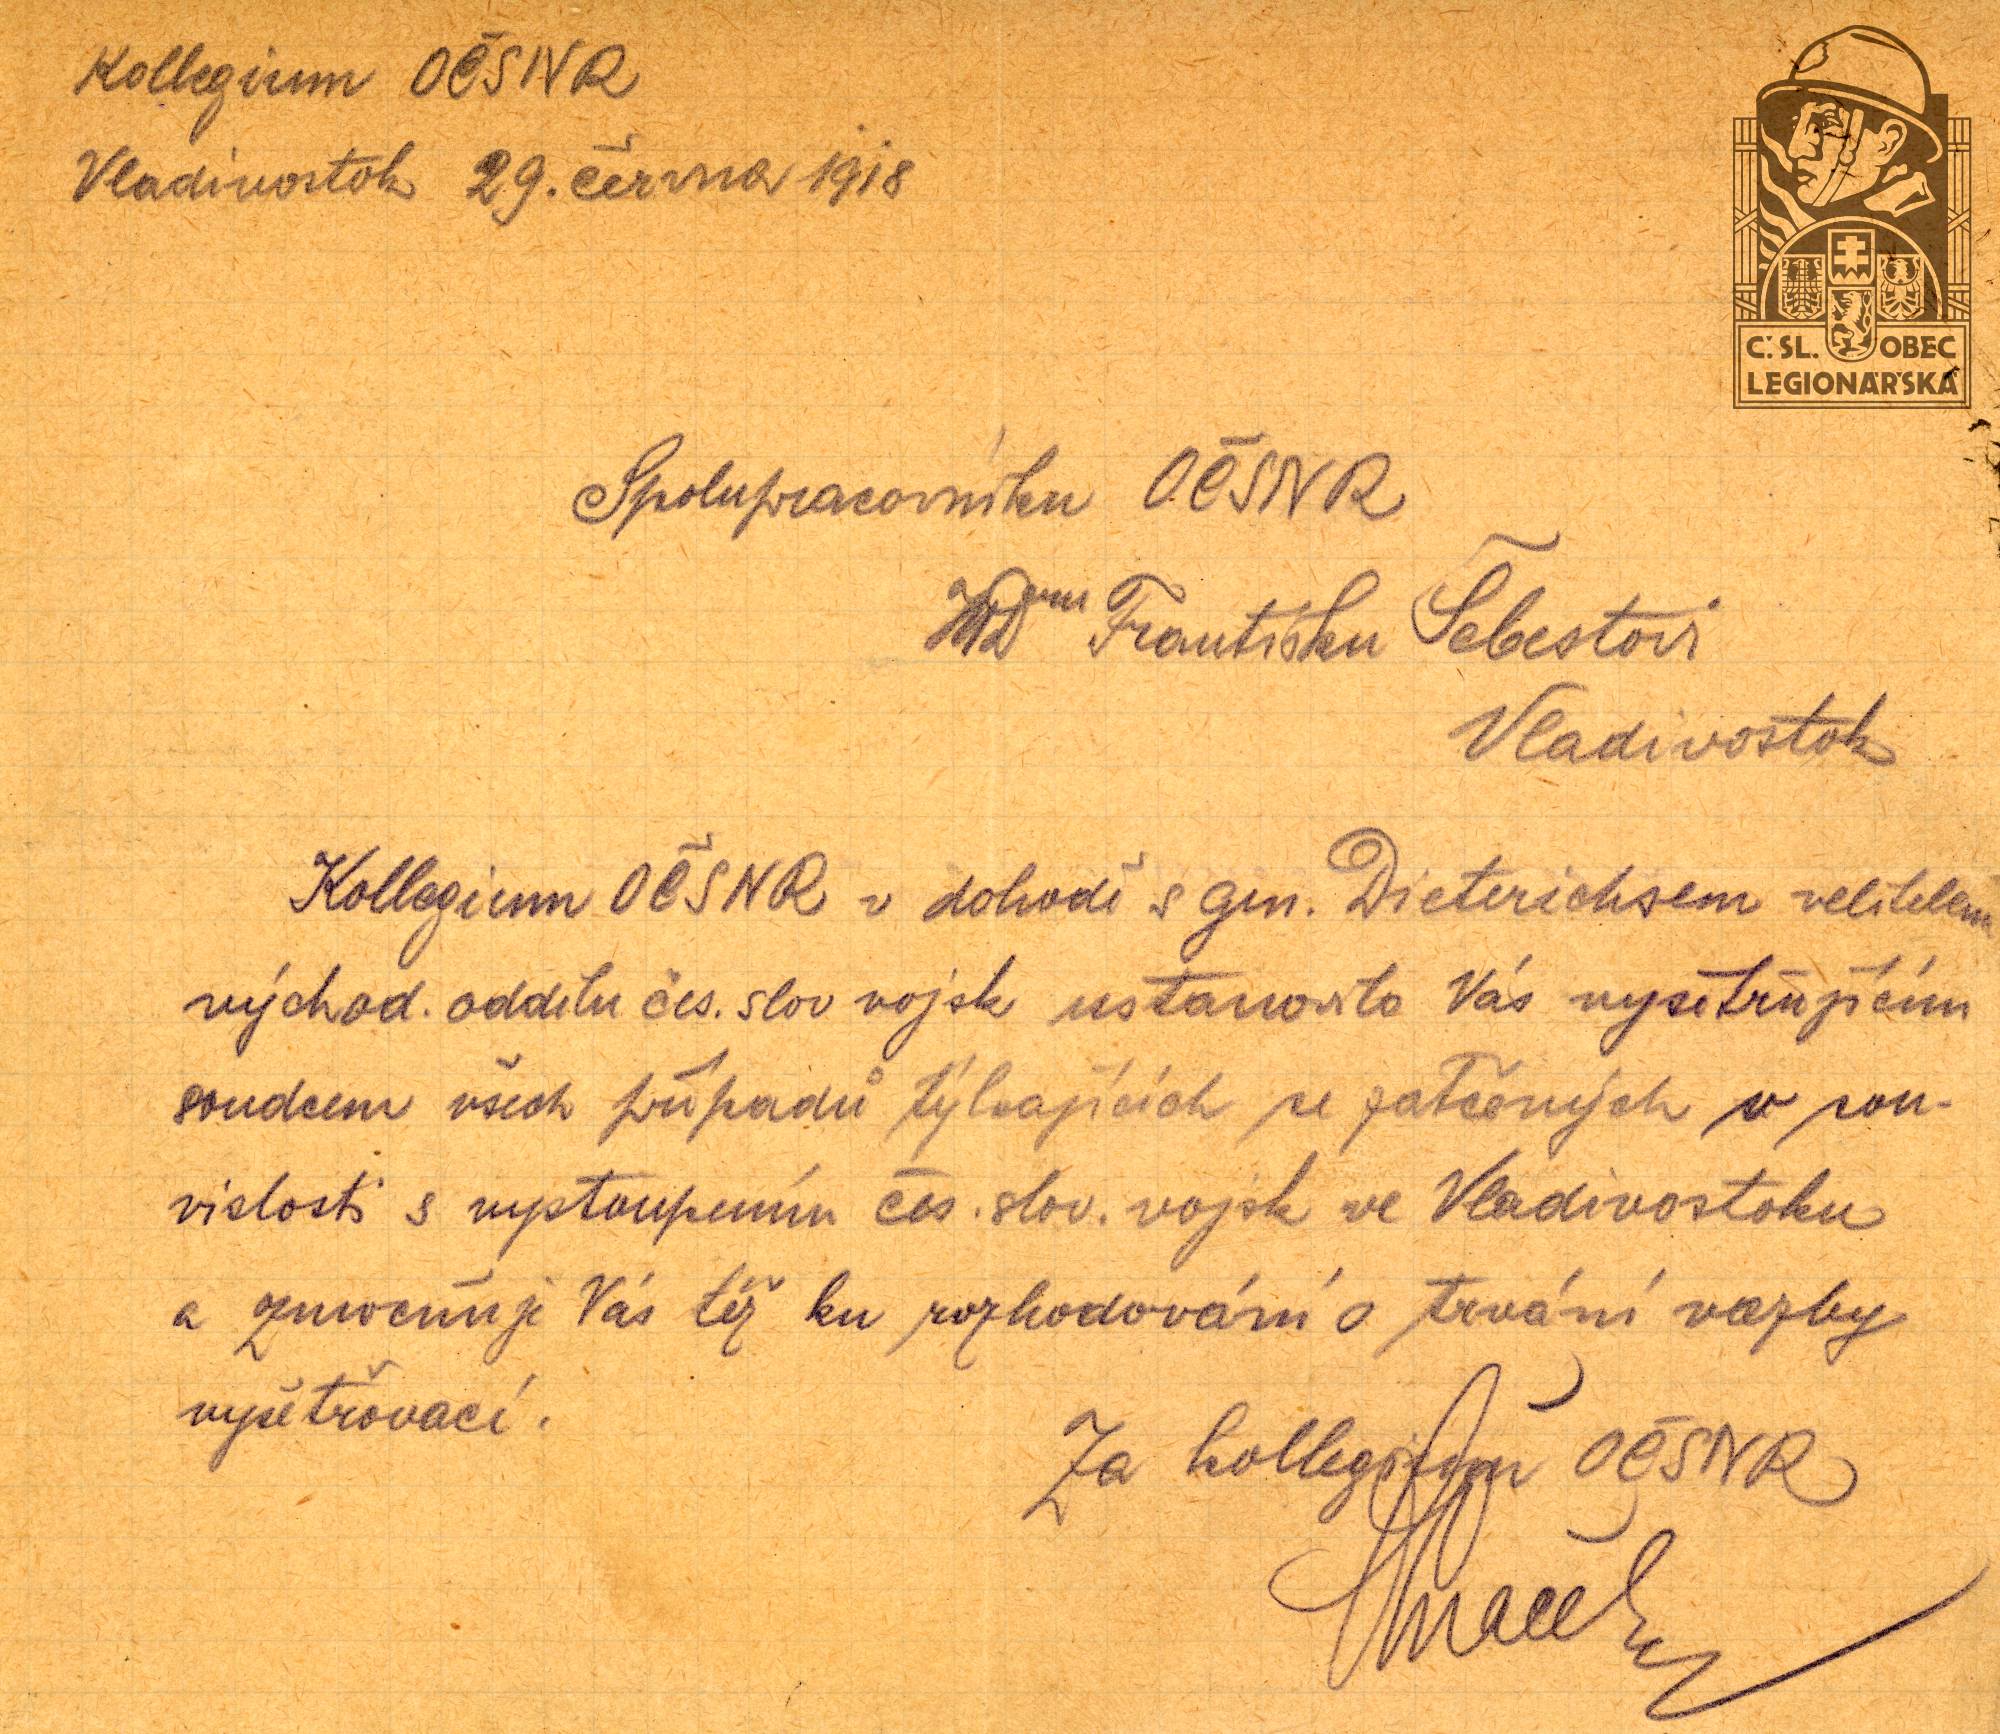 Kollegium OČSNR
Vladivostok 29. června 1918
Č. SL. OBEC
LEGIONÁŘSKÁ
Spolupracovníku OČSNR
Františku Šebestovi
Vladivostok
Kollegium OČSNR v dohodě s gen. Dieterichsem velitelem
východ. oddílu čes. slov vojsk ustanovilo Vás vyšetřujícím
soudcem všech případů týkajících se zatčených v sou-
vislosti s vystoupením čes. slov. vojsk ve Vladivostoku
a zmocňuje Vás též ku rozhodování o trvání vazby
vyšetřovací.
Za kollegium OČSNR